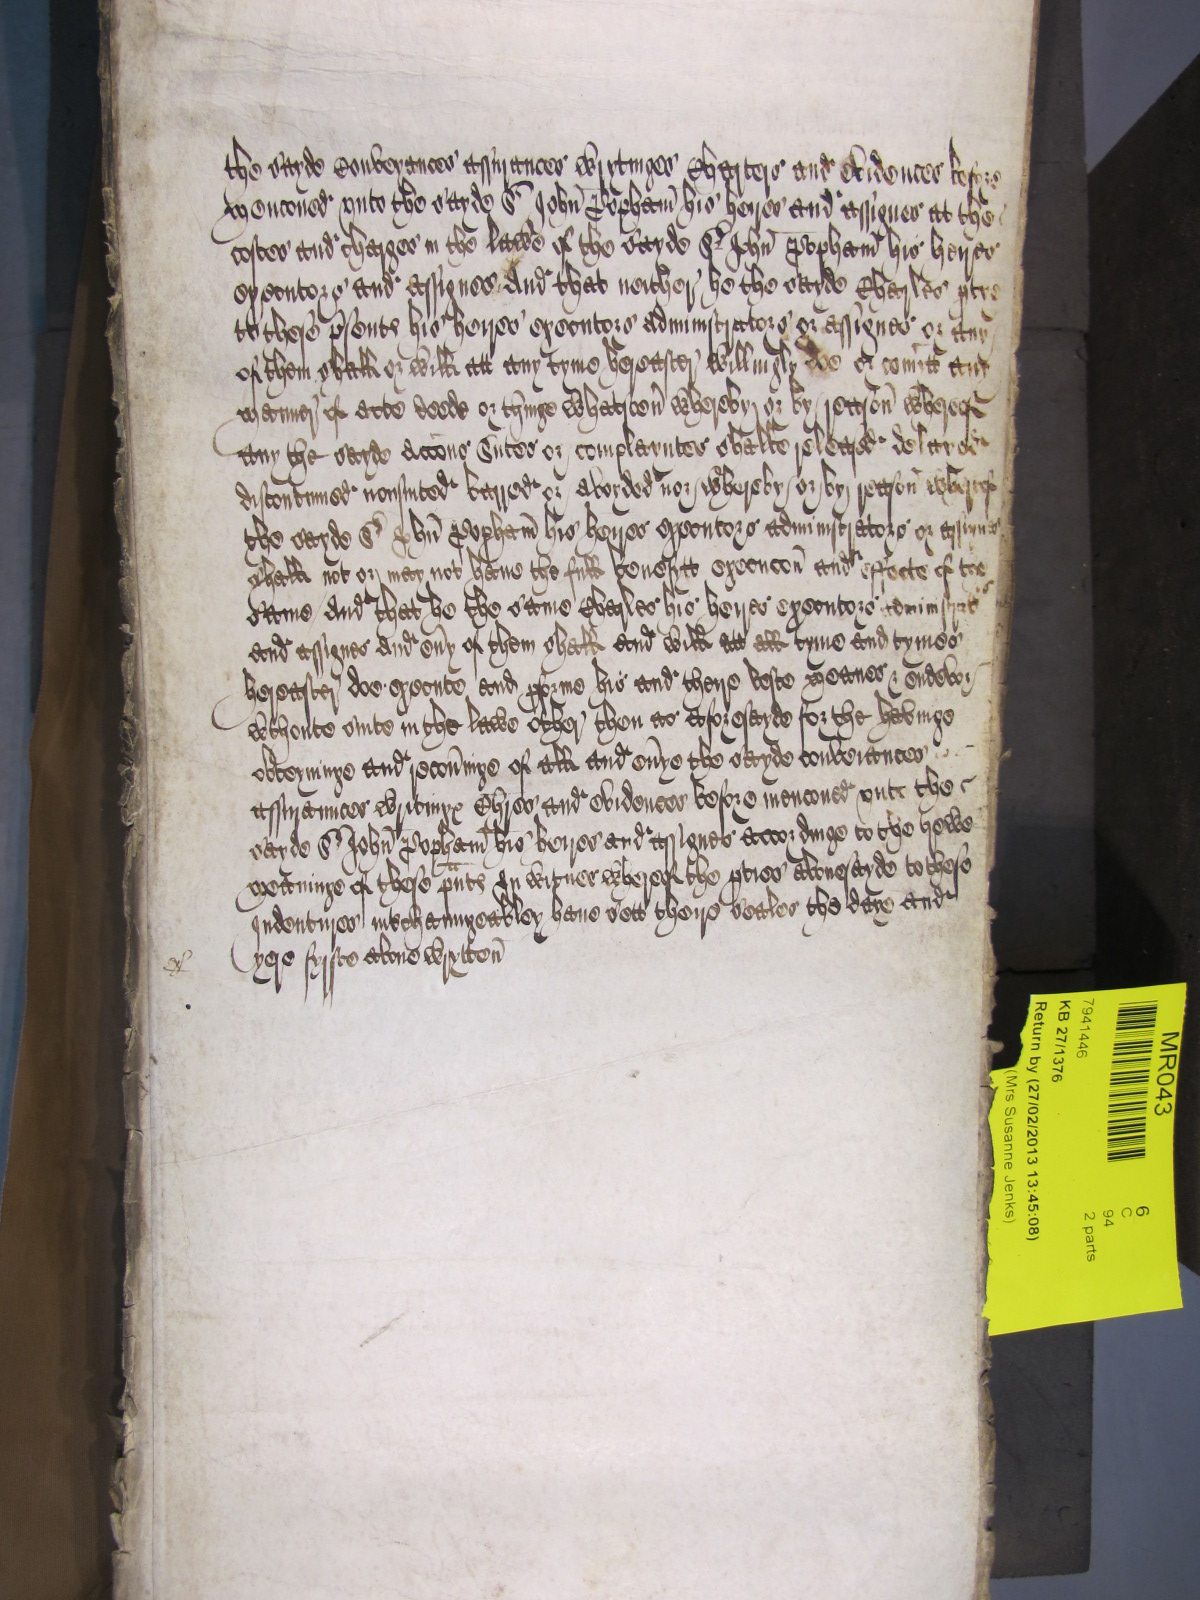 the sayde Conveyances assurances wrytinges Charters and Evidences before
menconed unto the sayde Sr John Popham his heyres and assignes at the
costes and charges in the lawe of the sayde Sr John Popham his heyres
executors and assignes And that neither he the sayde Charles ptie
to these psents his heyres executors administrators or assignes or any
of them shall or will att any tyme hereafter willingly doe or comitt any
manner of acte deede or thinge whatsoever whereby or by reason whereof
any the sayde accons Suites or complayntes shalbe released delayed
discontinued nonsuted barred or avoyded nor whereby or by reason whereof
the sayde Sr John Popham his heyres executors administrators or assignes
shall not or may not have the full benefitt execucon and effecte of the
same And that he the same Charles his heyres executors administrators
and assignes And evy of them shall and will att all tyme and tymes
hereafter doe execute and pforme his and theire beste meanes & endevor
wthoute suite in the lawe other then as aforesayde for the havinge
obteyninge and recovinge of all and evye the sayde conveiances
assurances writings Chres and evidences before menconed unto the
sayde Sr John Popham his heyres and assignes accordinge to the trewe
meaninge of these pnts In witnes whereof the pties abovesayde to these
Indentures interchaungeabley have sett theire seales the daye and
yere fyrste above wrytten
MR043
7941446
KB 27/1376
Return by (27/02/2013 13:45:08)
(Mrs Susanne Jenks)
6
C
94
2 parts